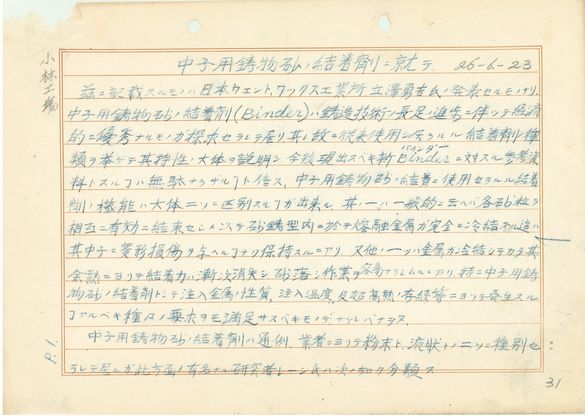 小林工場
中子用鋳物砂ノ結着劑ニ就テ 26-6-23
茲ニ記載スルモノハ日本ウェントワックス工業所立澤勇吉氏ノ発表セルモノナリ
中子用鋳物砂ノ結着劑(Binder)ハ鋳造技術ノ長足ノ進歩ニ伴ッテ経済
的ニ優秀ナルモノガ探求セラレテ居リ其ノ故ニ従来使用シ来ラルル結着劑ノ種
類ヲ挙ゲテ其特性ノ大体ヲ説明シ、今後現出スベキ新Binderニ対スル参考資
バインダー
料トスル丁ハ無駄ナラザル丁ト信ス、中子用鋳物砂ノ結着ニ使用セラルル結着
劑ノ機能ハ大体二ツニ区別スル丁ガ出来ル、其ノ一ハ一般的ニ云ヘバ各砂粒ヲ
相互ニ有効ニ結束セシメ以テ砂鋳型内ニ於テ熔融金属ガ完全ニ冷結スル迄ハ
其中子ニ変形損傷ヲ与ヘル丁ナク保持スルニアリ、又他ノ一ツハ金属ガ冷結シテカラ其
余熱ニヨリテ結着力ハ漸次消失シ砂落シ作業ヲ容易ナラシムルニアリ、特ニ中子用鋳
物砂ノ結着劑トシテ注入金属ノ性質、注入温度、及超高熱ノ有続等ニヨリテ発生スル
丁アルベキ種々ノ要求ヲモ満足サスベキモノデナケレバナラヌ
中子用鋳物砂ノ結着劑ハ通例、業者ニヨリテ粉末ト、液状トノ二ツニ種別セ
ラレテ居ルガ此方面ノ有名ナル研究者レーン氏ハ次ノ如ク分類ス
P.1.
31